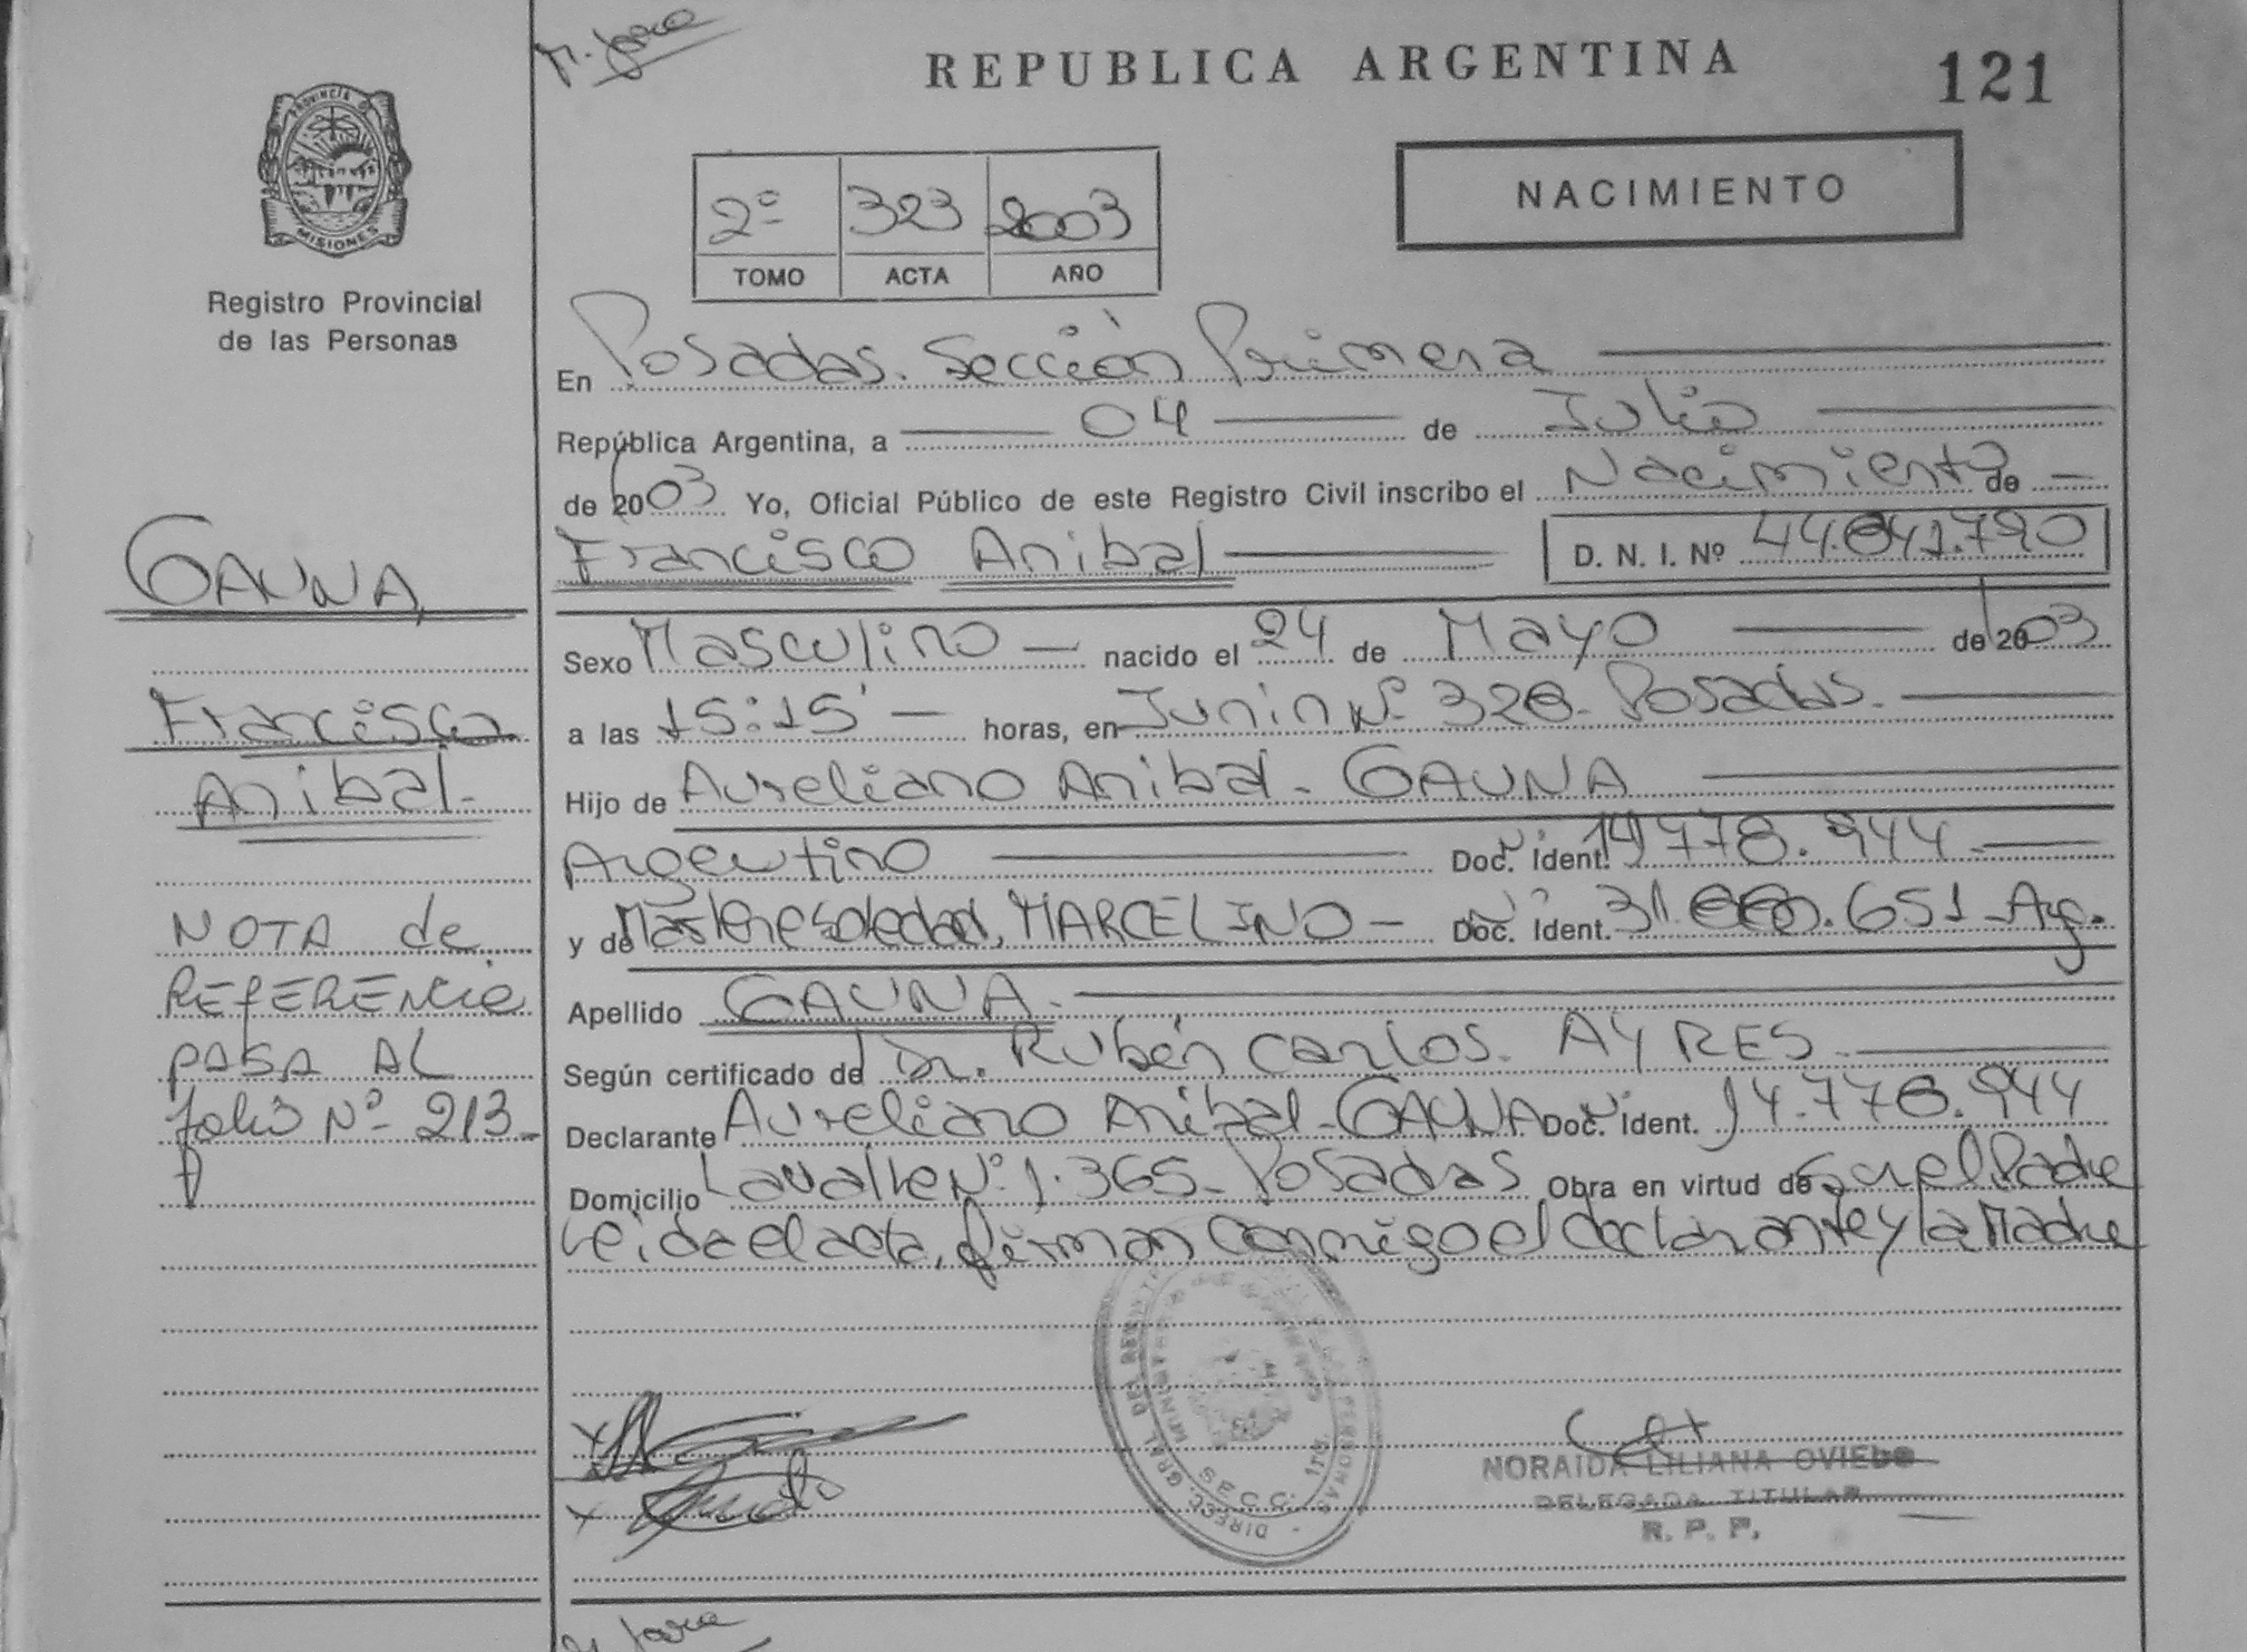 REPUBLICA ARGENTINA
121
PROVINCIA DE
MISIONES
Registro Provincial
de las Personas
2º 323 2003
TOMO ACTA AÑO
NACIMIENTO
En Posadas. Sección Primera
República Argentina, a 04 de Julio
de 2003 Yo, Oficial Público de este Registro Civil inscribo el Nacimiento de
Francisco Anibal D. N. I. Nº 44.841.790
Sexo Masculino nacido el 24 de Mayo de 2003
a las 15:15' horas, en Junin Nº 328. Posadas.
Hijo de Aureliano Anibal - GAUNA
Argentino Doc. Ident. 14.778.944
y de Soledad, MARCELINO - Doc. Ident. 31. .651 Arg.
Apellido GAUNA.
Según certificado de Dr. Rubén Carlos. AYRES
Declarante Aureliano Anibal - GAUNA Doc. Ident. 14.778.944
Domicilio Lavalle Nº 1.365 - Posadas Obra en virtud de Ser el Padre
Leida el acta, firman conmigo el declarante y la Madre
GAUNA,
Francisco
Anibal.
NOTA de
REFERENCIA
PASA AL
folio Nº 213
DIREC. GRAL. DEL REG.
SECC. 1ra.
NORAIDA LILIANA OVIEDO
DELEGADA TITULAR
R. P. P.